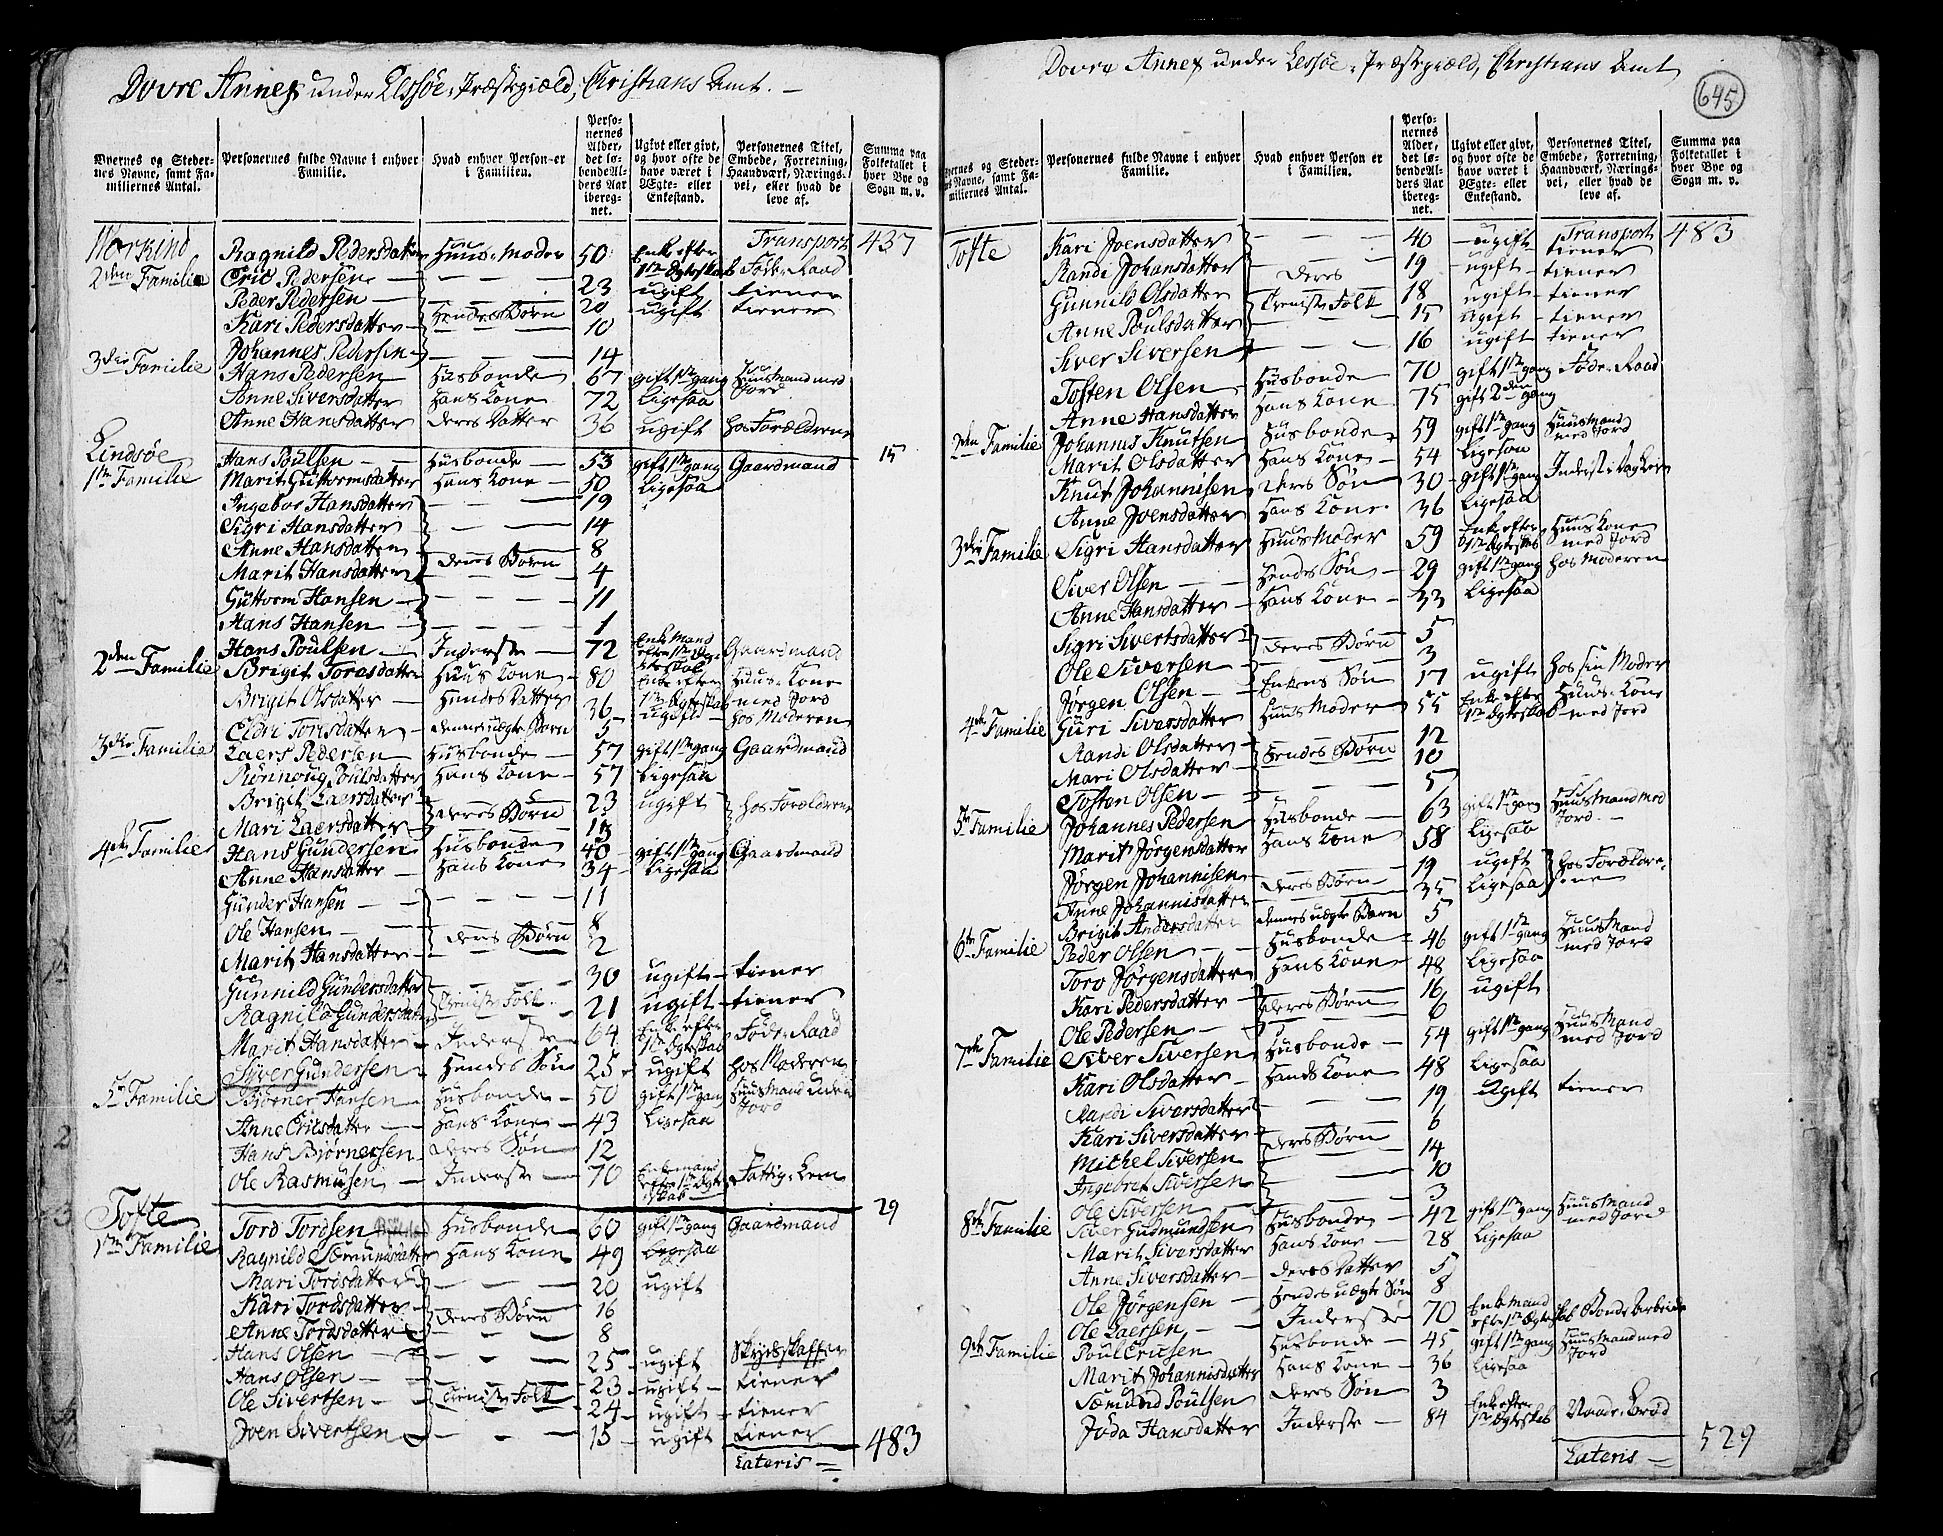 Dovre Annex under Lessøe Præstegiæld, Christians Amt. —
Byernes og Stedernes Navne, samt Familiernes Antal.
Personernes fulde Navne i enhver Familie.
Hvad enhver Person er i Familien.
Personernes Alder, det løbende Alders Aar iberegnet.
Ugivt eller givt, og hvor ofte de have været i Ægte- eller Enkestand.
Personernes Titel, Embede, Forretning, Haandværk, Næringsvei, eller hvad de leve af.
Summa paa Folketallet i hver Bye og Sogn m. v.
Transport 437
Ragnild Pedersdatter Huus-Moder 50 Enke efter 1ste Ægteskab Føde-Raad
2den Familie Eric Pedersen — — 23 ugift tiener
Peder Pedersen — Hendes Børn 20 ugift tiener
Kari Pedersdatter — 10
Johannes Pedersen — — 14
3die Familie Hans Pedersen Husbonde 67 gift 1ste gang Huusmand med Jord
Anne Siversdatter Hans Kone 72 Ligesaa
Anne Hansdatter deres Datter 36 ugift hos Forældrene
Lindsøe 15
1ste Familie Hans Poulsen — Husbonde — 53 gift 1ste gang Gaardmand
Marit Guttormsdatter Hans Kone — 50 Ligesaa
Ingebor Hansdatter — 19
Sigri Hansdatter — 14
Anne Hansdatter — deres Børn 8
Marit Hansdatter 4
Guttorm Hansen — 11
Hans Hansen — 1
2den Familie Hans Poulsen — Inderste 72 Enkemand efter 1ste Ægteskab Gaardmand
Brigit Toresdatter Huus Kone — 80 Enke efter 1ste Ægteskab Huus-Kone med Jord
Brigit Olsdatter Hendes Datter 36 ugift — hos Moderen
Eldri Toresdatter dennes uægte Barn 5
3die Familie Laers Pedersen — Husbonde — 57 gift 1ste gang Gaardmand
Rønnoug Poulsdatter Hans Kone — 57 Ligesaa
Brigit Laersdatter deres Børn 23 ugift hos Forældrene
Mari Laersdatter
4de Familie Hans Gundersen Husbonde 40 gift 1ste gang Gaardmand
Anne Hansdatter — Hans Kone — 34 Ligesaa
Gunder Hansen — — 11
Ole Hansen — — deres Børn 8
Marit Hansdatter — 2
Gunnild Gundersdatter — 30 ugift — tiener
Ragnild Gundersdatter Tieniste Folk 21 ugift — tiener
Marit Hansdatter — Inderste — 64 Enke efter 1ste Ægteskab Føde-Raad
Syver Gundersen — Hendes Søn 25 ugift hos Moderen
5te Familie Bjørner Hansen — Husbonde — 50 gift 1ste gang Huusmand uden Jord
Anne Ericsdatter — Hans Kone — 43 Ligesaa
Hans Bjørnersen deres Søn 12
Ole Rasmusen — Inderste — 70 Enkemand efter 1ste Ægteskab Fattig-Lem
Tofte 29
1ste Familie Tord Tordsen Husbonde — 60 gift 1ste gang Gaardmand
Ragnild Sæmundsdatter Hans Kone 49 Ligesaa
Mari Tordsdatter — 20 ugift
Kari Tordsdatter deres Børn 16
Anne Tordsdatter — 8
Hans Olsen — 25 — ugift Skydsskaffer
Hans Olsen — 23 — ugift — tiener
Ole Sivertsen — Tieniste Folk 24 — ugift — tiener
Joen Sivertsen — 15 — ugift tiener
Lateris — 483
Dovre Annex under Lessøe Præstegiæld, Christians Amt
645
Byernes og Stedernes Navne, samt Familiernes Antal.
Personernes fulde Navne i enhver Familie.
Hvad enhver Person er i Familien.
Personernes Alder, det løbende Alders Aar iberegnet.
Ugivt eller givt, og hvor ofte de have været i Ægte- eller Enkestand.
Personernes Titel, Embede, Forretning, Haandværk, Næringsvei, eller hvad de leve af.
Summa paa Folketallet i hver Bye og Sogn m. v.
Transport 483
Tofte Kari Joensdatter — 40 — ugift tiener
Randi Johansdatter deres 19 — ugift — tiener
Gunnild Olsdatter Tieniste Folk 18 ugift — tiener
Anne Poulsdatter — 15 ugift — tiener
Siver Siversen — 16 ugift tiener
Tosten Olsen — Husbonde 70 gift 1ste gang Føde-Raad
Anne Hansdatter Hans Kone 75 gift 2den gang
2den Familie Johannes Knutsen Husbonde 59 gift 1ste gang Huusmand med Jord
Marit Olsdatter Hans Kone — 54 Ligesaa
Knut Johannisen deres Søn 30 — gift 1ste gang
Anne Joensdatter Hans Kone 36 Ligesaa
3die Familie Sigri Hansdatter Huus Moder 59 Enke efter 1ste Ægteskab Huus Kone med Jord
Siver Olsen — Hendes Søn — 29 gift 1ste gang hos Moderen
Anne Hansdatter — Hans Kone — 33 Ligesaa
Sigri Sivertsdatter deres Børn 5
Ole Siversen — 3
Jørgen Olsen — Enkens Søn 17 ugift hos sin Moder
4de Familie Guri Siversdatter Huus Moder 55 Enke efter 1ste Ægteskab Huus-Kone med Jord
Randi Olsdatter — 12
Mari Olsdatter — Hendes Børn 10
Tosten Olsen — 5
5te Familie Johannes Pedersen Husbonde — 63 gift 1ste gang Huusmand med Jord. —
Marit Jørgensdatter Hans Kone 58 Ligesaa
Jørgen Johannisen — deres Børn — 19 ugift hos Forældrene
Anne Johannisdatter 35 Ligesaa
Brigit Andersdatter dennes uægte Barn 5
6te Familie Peder Olsen — Husbonde 46 gift 1ste gang Huusmand med Jord
Toro Jørgensdatter Hans Kone 48 Ligesaa
Kari Pedersdatter — deres Børn 16 ugift
Ole Pedersen — 6
7de Familie Siver Siversen Husbonde — 54 gift 1ste gang Huusmand med Jord
Kari Olsdatter — Hands Kone 48 Ligesaa
Randi Siversdatter — 19 ugift tiener
Kari Siversdatter — deres Børn 6
Michel Siversen — 14
Ingebret Siversen — 10
Ole Siversen — 3
8de Familie Siver Gudmundsen Husbonde — 42 gift 1ste gang Huusmand med Jord
Marit Siversdatter Hans Kone — 28 Ligesaa
Anne Siversdatter — deres Datter 5
Ole Jørgensen — Hendes uægte Søn 8
Ole Laersen — Inderste 70 Enkemand efter 1ste Ægteskab Bonde Arbeide
9de Familie Poul Ericsen Husbonde — 45 gift 1ste gang Huusmand med Jord
Marit Johannisdatter Hans Kone — 36 Ligesaa
Sæmund Poulsen deres Søn 3
Jøda Hansdatter Inderste — 84 Enke efter 1ste Ægteskab Naade-Brød
Lateris — 529